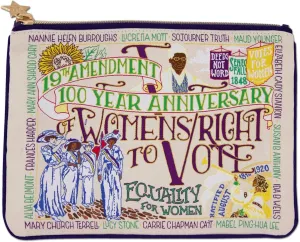 NANNIE HELEN BURROUGHS
LUCRETIA MOTT
SOJOURNER TRUTH
MAUD YOUNGER
MARY ANN SHADD CARY
FRANCES HARPER
ALVA BELMONT
19TH AMENDMENT
100 YEAR ANNIVERSARY
OF WOMENS RIGHT
TO VOTE
DEEDS
NOT
WORDS
SENECA
FALLS
1848
VOTES
FOR
WOMEN
EQUALITY
FOR WOMEN
1920
RATIFIED
AUGUST
ELIZABETH CADY STANTON
SUSAN B ANTHONY
IDA B WELLS
MARY CHURCH TERRELL
LUCY STONE
CARRIE CHAPMAN CATT
MABEL PING HUA LEE